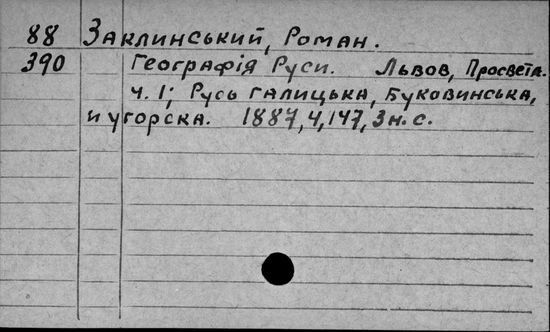 88 Заклинський, Роман.
390 Географія Руси. Львов, Просвета.
ч. I; Русь галицька, Буковинська,
и угорска. 1887, 4, 147, 3 н. с.